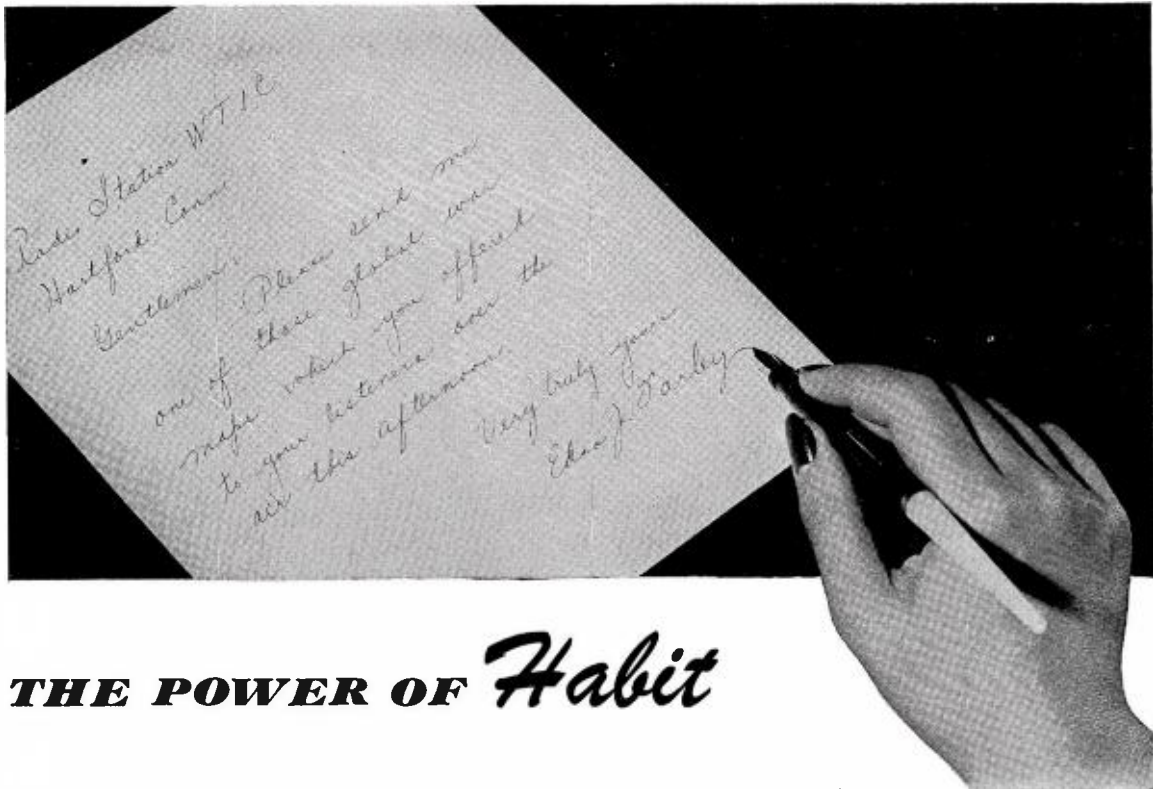 Radio Station WTIC
Hartford. Conn.
Gentlemen:
Please send me
one of those global war
maps which you offered
to your listeners over the
air this afternoon.
Very truly yours
J. Farley
THE POWER OF Habit